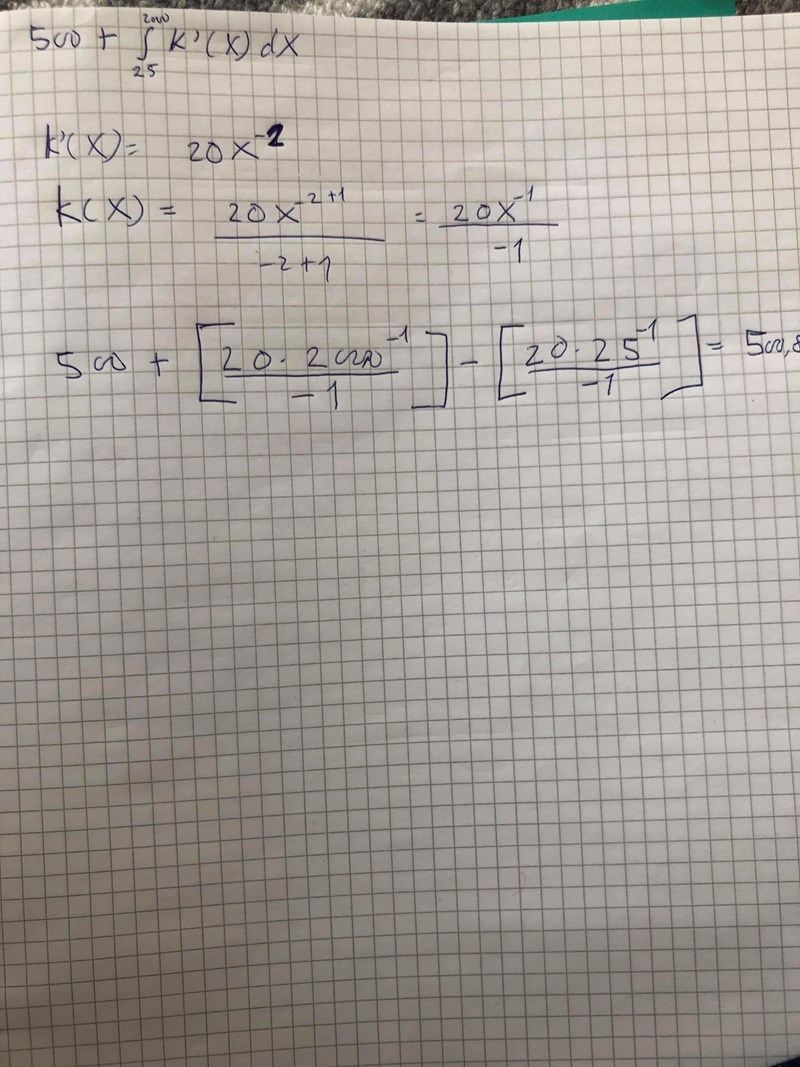 500 + ∫₂₅²⁰⁰⁰ K'(X) dX
K'(X) = 20X⁻²
K(X) = 20X⁻²⁺¹ / -2+1 = 20X⁻¹ / -1
500 + [20·2000⁻¹ / -1] - [20·25⁻¹ / -1] = 500,8